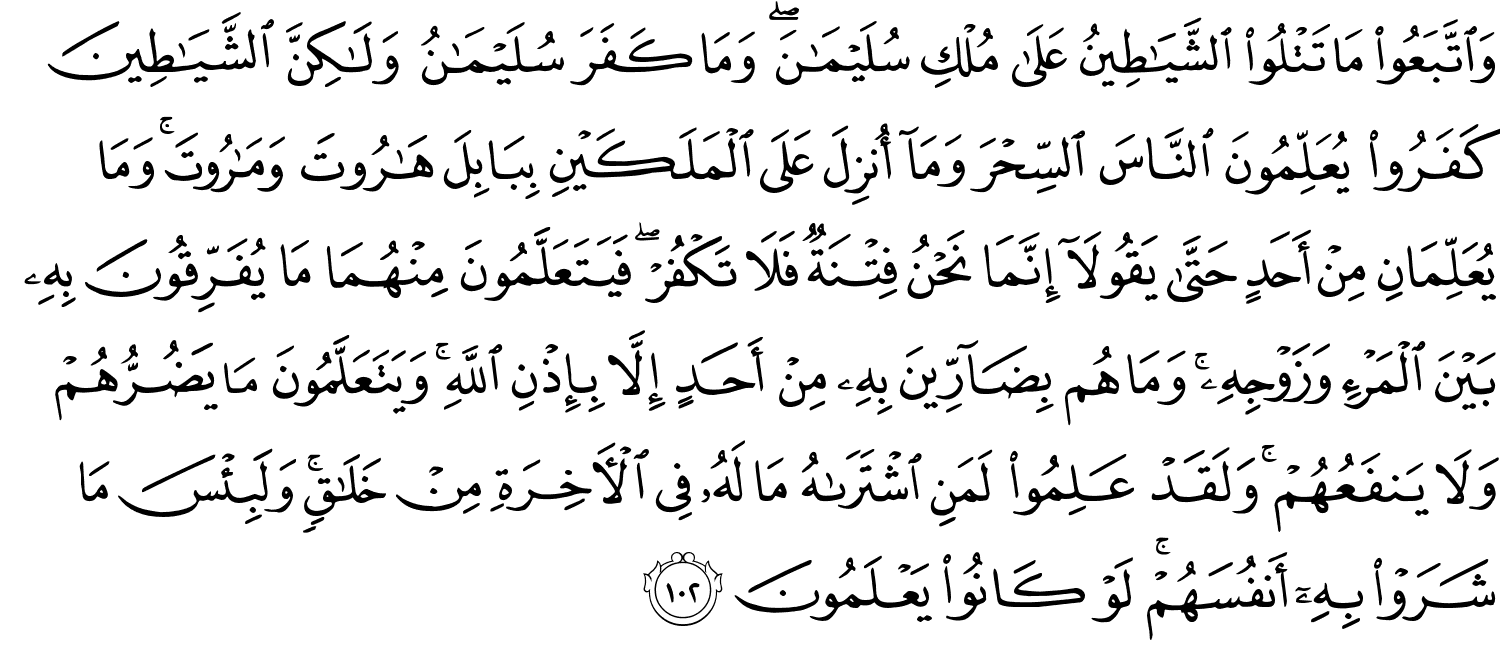 وَٱتَّبَعُوا۟ مَا تَتْلُوا۟ ٱلشَّيَـٰطِينُ عَلَىٰ مُلْكِ سُلَيْمَـٰنَ ۖ وَمَا كَفَرَ سُلَيْمَـٰنُ وَلَـٰكِنَّ ٱلشَّيَـٰطِينَ
كَفَرُوا۟ يُعَلِّمُونَ ٱلنَّاسَ ٱلسِّحْرَ وَمَآ أُنزِلَ عَلَى ٱلْمَلَكَيْنِ بِبَابِلَ هَـٰرُوتَ وَمَـٰرُوتَ ۚ وَمَا
يُعَلِّمَانِ مِنْ أَحَدٍ حَتَّىٰ يَقُولَآ إِنَّمَا نَحْنُ فِتْنَةٌ فَلَا تَكْفُرْ ۖ فَيَتَعَلَّمُونَ مِنْهُمَا مَا يُفَرِّقُونَ بِهِۦ
بَيْنَ ٱلْمَرْءِ وَزَوْجِهِۦ ۚ وَمَا هُم بِضَآرِّينَ بِهِۦ مِنْ أَحَدٍ إِلَّا بِإِذْنِ ٱللَّهِ ۚ وَيَتَعَلَّمُونَ مَا يَضُرُّهُمْ
وَلَا يَنفَعُهُمْ ۚ وَلَقَدْ عَلِمُوا۟ لَمَنِ ٱشْتَرَىٰهُ مَا لَهُۥ فِى ٱلْـَٔاخِرَةِ مِنْ خَلَـٰقٍ ۚ وَلَبِئْسَ مَا
شَرَوْا۟ بِهِۦٓ أَنفُسَهُمْ ۚ لَوْ كَانُوا۟ يَعْلَمُونَ ١٠٢